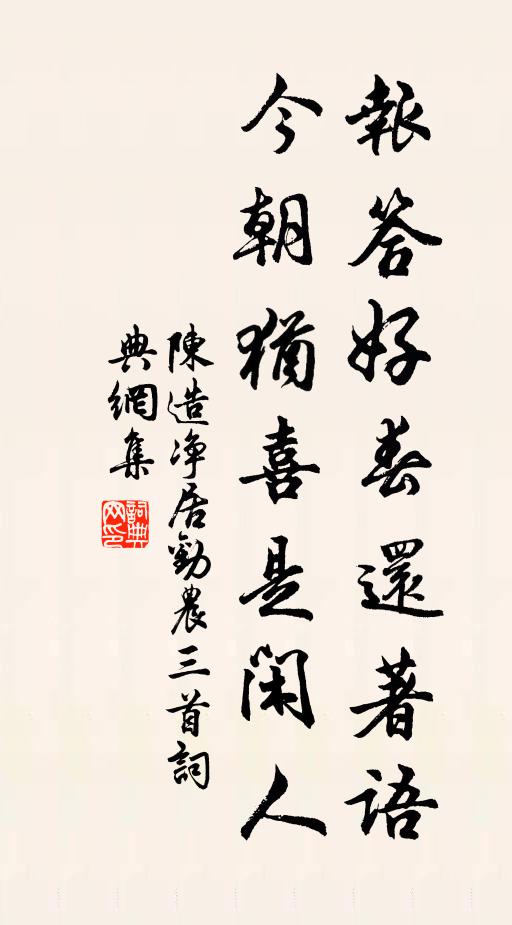 報答好春還著語
今朝猶喜是閑人
陳造净居勸農三首詞
典網集
詞典网印